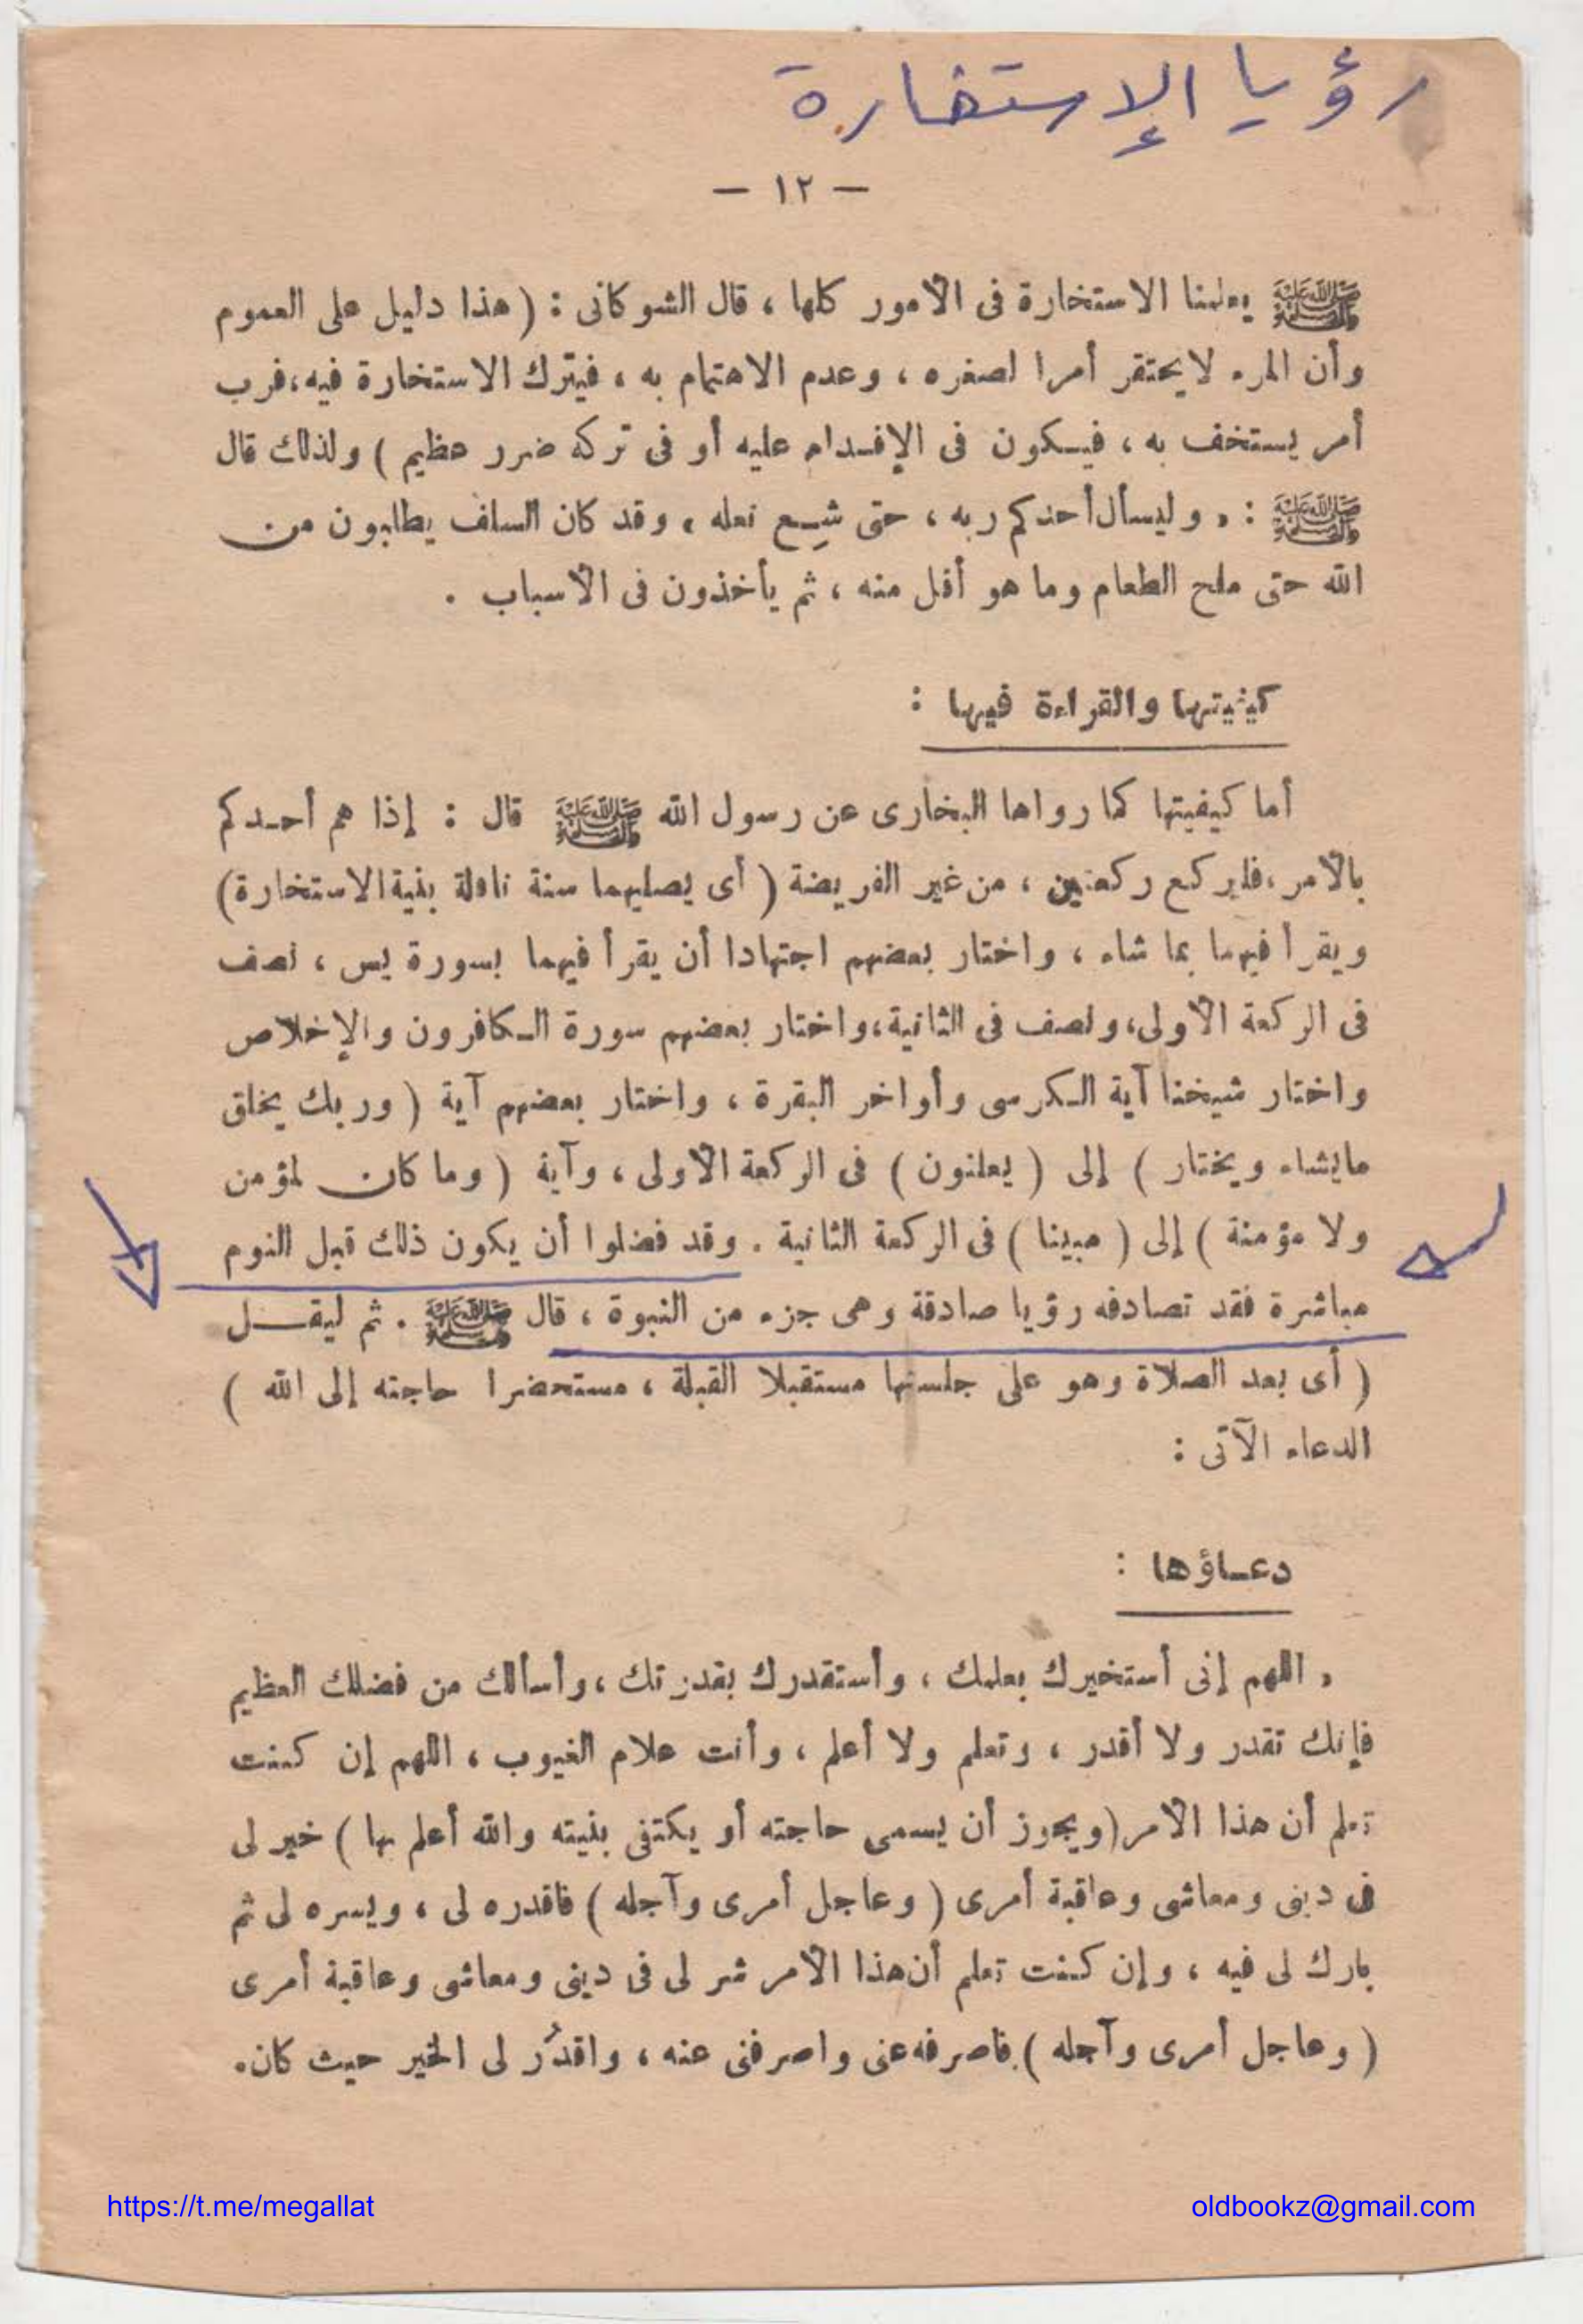 رؤيا الإستخارة
— ١٢ —
ﷺ يعلمنا الاستخارة فى الأمور كلها ، قال الشوكانى : ( هذا دليل على العموم
وأن المرء لا يحتقر أمرا لصغره ، وعدم الاهتمام به ، فيترك الاستخارة فيه ، فرب
أمر يستخف به ، فيـكون فى الإقـدام عليه أو فى تركه ضرر عظيم ) ولذلك قال
ﷺ : « وليسأل أحدكم ربه ، حتى شِسع نعله » وقد كان السلف يطلبون من
الله حتى ملح الطعام وما هو أقل منه ، ثم يأخذون فى الأسباب .
كيفيتها والقراءة فيها :
أما كيفيتها كما رواها البخارى عن رسول الله ﷺ قال : إذا هم أحـدكم
بالأمر ، فليركع ركعتين ، من غير الفريضة ( أى يصليهما سنة نافلة بنية الاستخارة )
ويقرأ فيهما بما شاء ، واختار بعضهم اجتهادا أن يقرأ فيهما بسورة يس ، نصف
فى الركعة الأولى ، ونصف فى الثانية ، واختار بعضهم سورة الـكافرون والإخلاص
واختار شيخنا آية الـكرسى وأواخر البقرة ، واختار بعضهم آية ( وربك يخلق
ما يشاء ويختار ) إلى ( يعلنون ) فى الركعة الأولى ، وآية ( وما كان لمؤمن
ولا مؤمنة ) إلى ( مبينا ) فى الركعة الثانية . وقد فضلوا أن يكون ذلك قبل النوم
مباشرة فقد تصادفه رؤيا صادقة وهى جزء من النبوة ، قال ﷺ . ثم ليقـــل
( أى بعد الصلاة وهو على جلستها مستقبلا القبلة ، مستحضرا حاجته إلى الله )
الدعاء الآتى :
دعـاؤها :
« اللهم إنى أستخيرك بعلمك ، وأستقدرك بقدرتك ، وأسألك من فضلك العظيم
فإنك تقدر ولا أقدر ، وتعلم ولا أعلم ، وأنت علام الغيوب ، اللهم إن كنت
تعلم أن هذا الأمر ( ويجوز أن يسمى حاجته أو يكتفى بنيته والله أعلم بها ) خير لى
فى دينى ومعاشى وعاقبة أمرى ( وعاجل أمرى وآجله ) فاقدره لى ، ويسره لى ثم
بارك لى فيه ، وإن كنت تعلم أن هذا الأمر شر لى فى دينى ومعاشى وعاقبة أمرى
( وعاجل أمرى وآجله ) فاصرفه عنى واصرفنى عنه ، واقدُر لى الخير حيث كان .
https://t.me/megallat
oldbookz@gmail.com